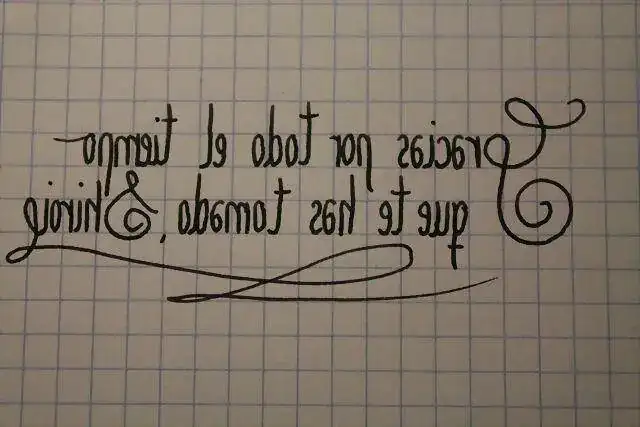 Gracias por todo el tiempo
que te has tomado, Shiroig